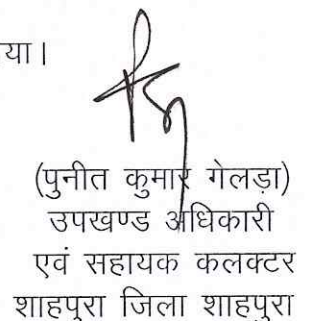 या।
(पुनीत कुमार गेलड़ा)
उपखण्ड अधिकारी
एवं सहायक कलक्टर
शाहपुरा जिला शाहपुरा